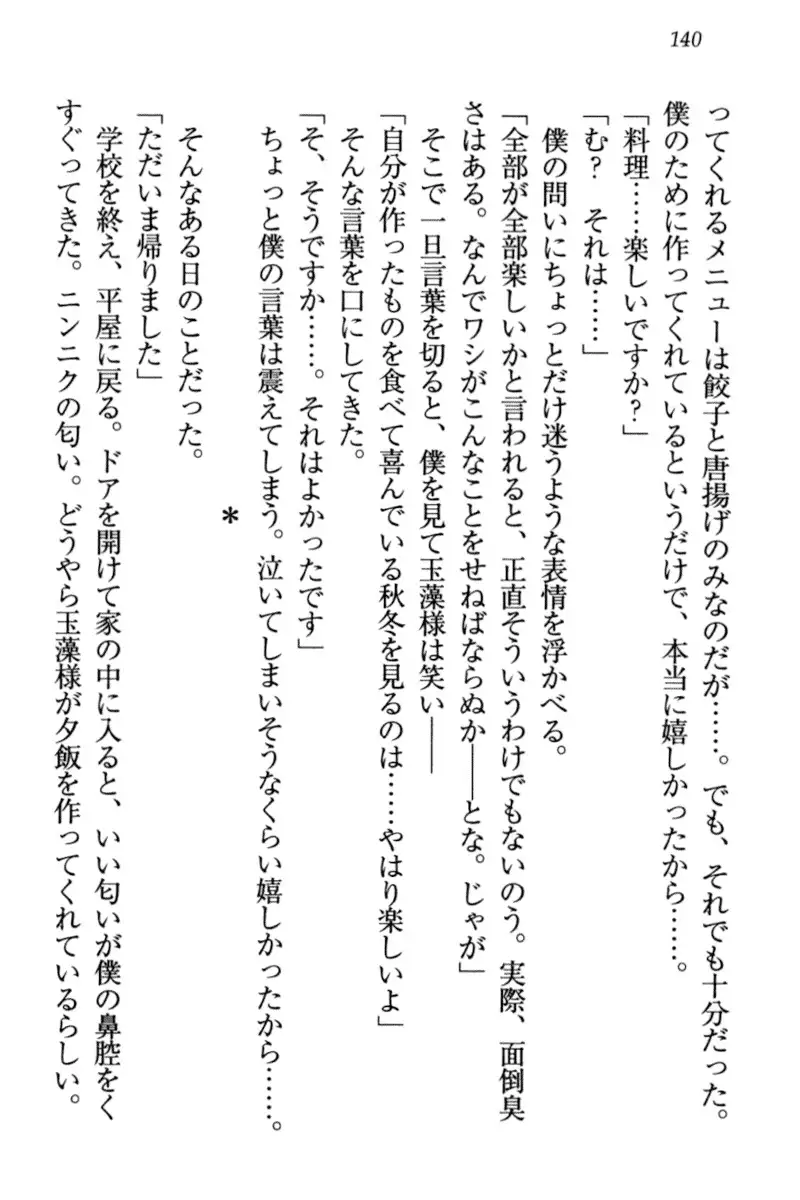 140
ってくれるメニューは餃子と唐揚げのみなのだが……。でも、それでも十分だった。
僕のために作ってくれているというだけで、本当に嬉しかったから……。
「料理……楽しいですか?」
「む? それは……」
僕の問いにちょっとだけ迷うような表情を浮かべる。
「全部が全部楽しいかと言われると、正直そういうわけでもないのう。実際、面倒臭
さはある。なんでワシがこんなことをせねばならぬか――とな。じゃが」
そこで一旦言葉を切ると、僕を見て玉藻様は笑い――
「自分が作ったものを食べて喜んでいる秋冬を見るのは……やはり楽しいよ」
そんな言葉を口にしてきた。
「そ、そうですか……。それはよかったです」
ちょっと僕の言葉は震えてしまう。泣いてしまいそうなくらい嬉しかったから……。
*
そんなある日のことだった。
「ただいま帰りました」
学校を終え、平屋に戻る。ドアを開けて家の中に入ると、いい匂いが僕の鼻腔をく
すぐってきた。ニンニクの匂い。どうやら玉藻様が夕飯を作ってくれているらしい。